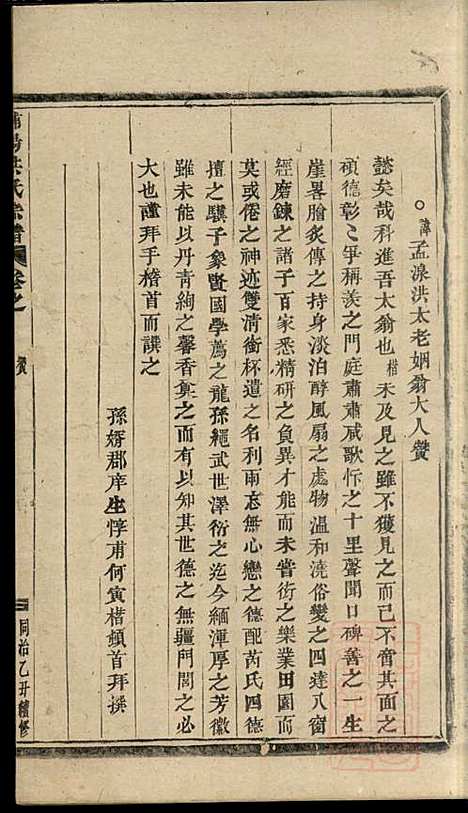 諱孟湶洪太老姻翁大人贊
懿矣哉科進吾太翁也楷未及見之雖不獲見之而已不啻其面之
碩德彰彰爭稱羨之門庭肅肅咸歌忭之十里聲聞口碑善之一生
崖畧膾炙傳之持身淡泊醇風扇之處物溫和澆俗變之四達八窗
經磨鍊之諸子百家悉精研之負異才能而未嘗衒之樂業田園而
莫或倦之神迹雙清銜杯遣之名利兩忘無心戀之德配芮氏四德
擅之驥子象賢國學薦之龍孫繩武世澤衍之迄今緬渾厚之芳徽
雖未能以丹青絢之馨香奠之而有以知其世德之無疆門閭之必
大也謹拜手稽首而譔之
孫婿郡庠生惇甫何寅楷頓首拜撰
洪氏宗譜 卷之 贊
同治乙丑續修